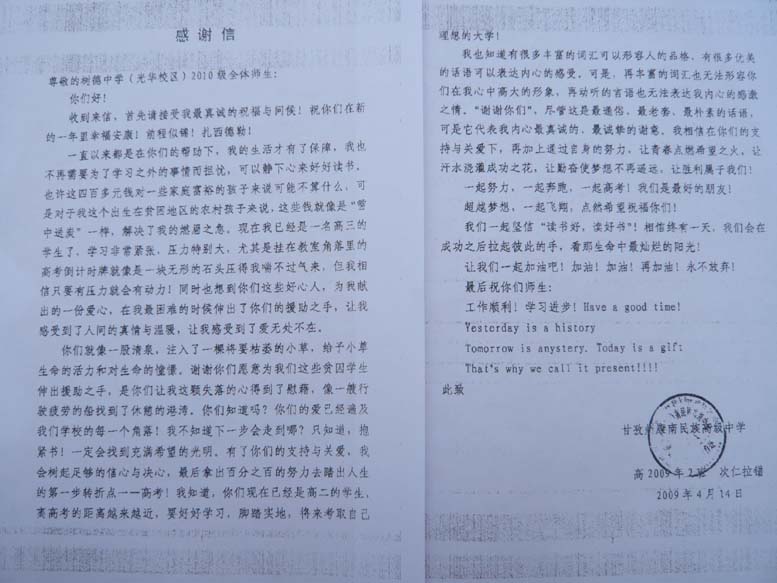 感谢信
尊敬的树德中学（光华校区）2010级全体师生：
你们好！
收到来信，首先请接受我最真诚的祝福与问候！祝你们在新
的一年里幸福安康！前程似锦！扎西德勒！
一直以来都是在你们的帮助下，我的生活才有了保障，我也
不再需要为了学习之外的事情而担忧，可以静下心来好好读书。
也许这四百多元钱对一些家庭富裕的孩子来说可能不算什么，可
是对于我这个出生在贫困地区的农村孩子来说，这些钱就像是“雪
中送炭”一样，解决了我的燃眉之急。现在我已经是一名高三的
学生了，学习非常紧张，压力特别大，尤其是挂在教室角落里的
高考倒计时牌就像是一块无形的石头压得我喘不过气来，但我相
信只要有压力就会有动力！同时也想到你们这些好心人，为我献
出的一份爱心，在我最困难的时候伸出了你们的援助之手，让我
感受到了人间的真情与温暖，让我感受到了爱无处不在。
你们就像一股清泉，注入了一棵将要枯萎的小草，给予小草
生命的活力和对生命的憧憬。谢谢你们愿意为我们这些贫困学生
伸出援助之手，是你们让我这颗失落的心得到了慰藉，像一艘行
驶疲劳的船找到了休憩的港湾。你们知道吗？你们的爱已经遍及
我们学校的每一个角落！我不知道下一步会走到哪？只知道，抱
紧书！一定会找到充满希望的光明。有了你们的支持与关爱，我
会树起足够的信心与决心，最后拿出百分之百的努力去踏出人生
的第一步转折点——高考！我知道，你们现在已经是高二的学生，
离高考的距离越来越近，要好好学习，脚踏实地，将来考取自己
理想的大学！
我也知道有很多丰富的词汇可以形容人的品格，有很多优美
的话语可以表达内心的感受。可是，再丰富的词汇也无法形容你
们在我心中高大的形象，再动听的言语也无法表达我内心的感激
之情。“谢谢你们”，尽管这是最通俗、最老套、最朴素的话语，
可是它代表我内心最真诚的、最诚挚的谢意。我相信在你们的支
持与关爱下，再加上通过自身的努力，让青春点燃希望之火，让
汗水浇灌成功之花，让勤奋使梦想不再遥远，让胜利属于我们！
一起努力，一起奔跑，一起高考！我们是最好的朋友！
超越梦想，一起飞翔，点燃希望祝福你们！
我们一起坚信“读书好，读好书”！相信终有一天，我们会在
成功之后拉起彼此的手，看那生命中最灿烂的阳光！
让我们一起加油吧！加油！加油！再加油！永不放弃！
最后祝你们师生：
工作顺利！学习进步！Have a good time!
Yesterday is a history
Tomorrow is anystery. Today is a gift
That's why we call it present!!!!
此致
甘孜州康南民族高级中学
高2009年2班 次仁拉错
2009年4月14日